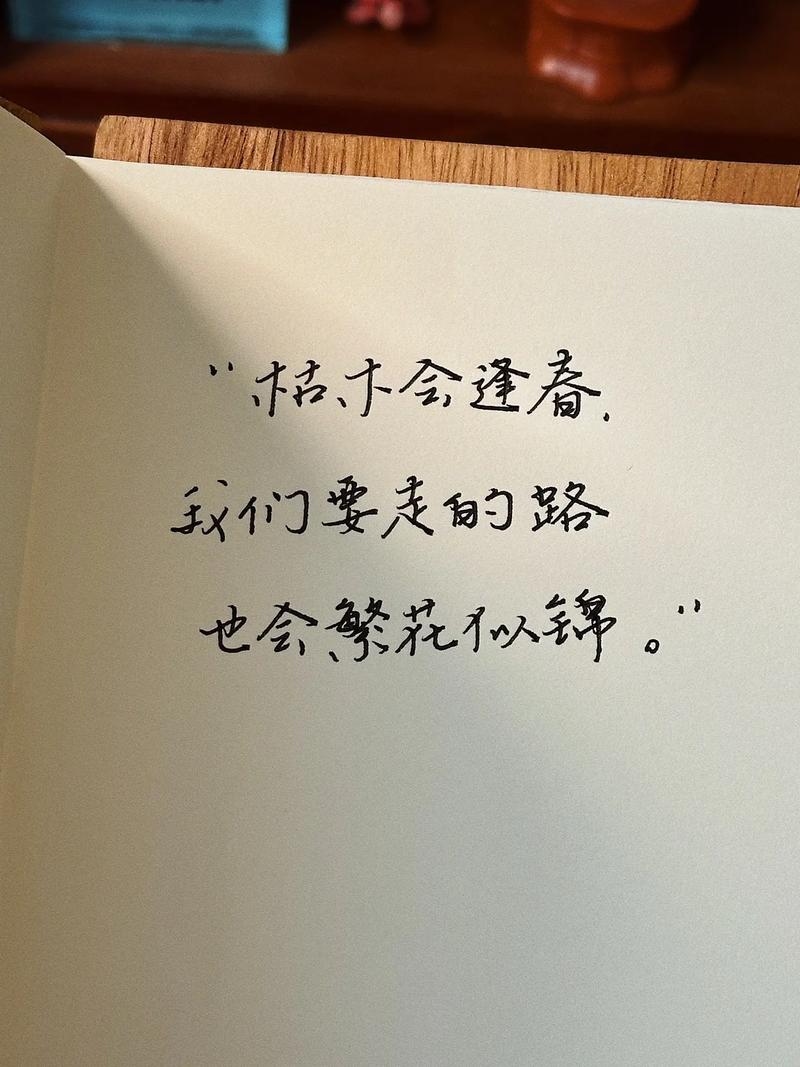 "枯木会逢春,
我们要走的路
也会繁花似锦。"